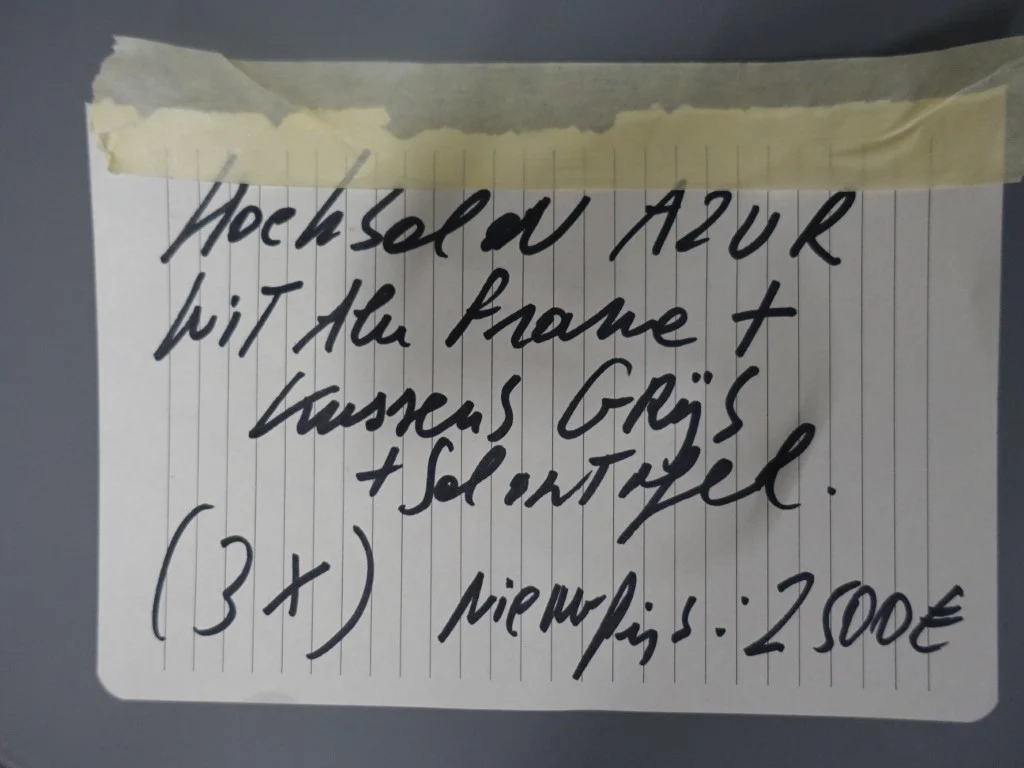 Hoeksalon AZUR
wit Alu frame +
kussens GRijS
+ Salontafel.
(3x) Nieuwprijs: 2500€